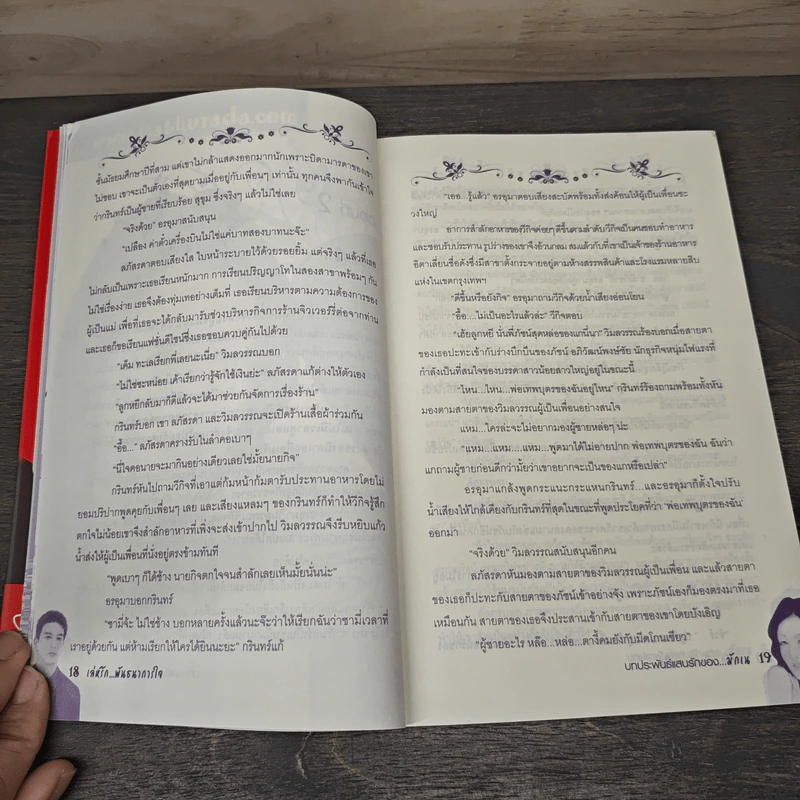 ชั้นมัธยมศึกษาปีที่สาม แต่เขาไม่กล้าแสดงออกมากนักเพราะบิดามารดาของเขา
ไม่ชอบ เขาจะเป็นตัวเองที่สุดยามเมื่ออยู่กับเพื่อนๆ เท่านั้น ทุกคนจึงพากันเข้าใจ
ว่ากรินทร์เป็นผู้ชายที่เรียบร้อย สุขุม ซึ่งจริงๆ แล้วไม่ใช่เลย
"จริงด้วย" อรอุมาสนับสนุน
"เปลือง ค่าตั๋วเครื่องบินไม่ใช่แค่บาทสองบาทนะจ๊ะ"
ลภัสรดาตอบเสียงใส ใบหน้าระบายไว้ด้วยรอยยิ้ม แต่จริงๆ แล้วที่เธอ
ไม่กลับเป็นเพราะเธอเรียนหนักมาก การเรียนปริญญาโทในสองสาขาพร้อมๆ กัน
ไม่ใช่เรื่องง่าย เธอจึงต้องทุ่มเทอย่างเต็มที่ เธอเรียนบริหารตามความต้องการของ
ผู้เป็นแม่ เพื่อที่เธอจะได้กลับมารับช่วงบริหารกิจการร้านจิวเวอร์รี่ต่อจากท่าน
และเธอก็ขอเรียนแฟชั่นดีไซน์ซึ่งเธอชอบควบคู่กันไปด้วย
"เค็ม ทะเลเรียกพี่เลยนะเนี่ย" วิมลวรรณบอก
"ไม่ใช่ซะหน่อย เค้าเรียกว่ารู้จักใช้เงินย่ะ" ลภัสรดาแก้ต่างให้ตัวเอง
"ลูกหยีกลับมาก็ดีแล้วจะได้มาช่วยกันจัดการเรื่องร้าน"
กรินทร์บอก เขา ลภัสรดา และวิมลวรรณจะเปิดร้านเสื้อผ้าร่วมกัน
"อื้อ..." ลภัสรดาครางรับในลำคอเบาๆ
"นี่ใจคอนายจะมากินอย่างเดียวเลยใช่มั้ยนายกิจ"
กรินทร์หันไปถามวีกิจที่เอาแต่ก้มหน้าก้มตารับประทานอาหารโดยไม่
ยอมปริปากพูดคุยกับเพื่อนๆ เลย และเสียงแหลมๆ ของกรินทร์ก็ทำให้วีกิจรู้สึก
ตกใจไม่น้อยเขาจึงสำลักอาหารที่เพิ่งจะส่งเข้าปากไป วิมลวรรณจึงรีบหยิบแก้ว
น้ำส่งให้ผู้เป็นเพื่อนที่นั่งอยู่ตรงข้ามทันที
"พูดเบาๆ ก็ได้ซ้าง นายกิจตกใจจนสำลักเลยเห็นมั้ยนั่นน่ะ"
อรอุมาบอกกรินทร์
"ซามี่จ้ะ ไม่ใช่ช้าง บอกหลายครั้งแล้วนะจ๊ะว่าให้เรียกฉันว่าซามี่เวลาที่
เราอยู่ด้วยกัน แต่ห้ามเรียกให้ใครได้ยินนะยะ" กรินทร์แก้
18 เล่ห์รัก...พันธนาการใจ
"เออ...รู้แล้ว" อรอุมาตอบเสียงสะบัดพร้อมทั้งส่งค้อนให้ผู้เป็นเพื่อนซะ
วงใหญ่
อาการสำลักอาหารของวีกิจค่อยๆ ดีขึ้นตามลำดับวีกิจเป็นคนชอบทำอาหาร
และชอบรับประทาน รูปร่างของเขาจึงอ้วนกลม สมแล้วกับที่เขาเป็นเจ้าของร้านอาหาร
อิตาเลี่ยนชื่อดังซึ่งมีสาขาตั้งกระจายอยู่ตามห้างสรรพสินค้าและโรงแรมหลายสิบ
แห่งในเขตกรุงเทพฯ
"ดีขึ้นหรือยังกิจ" อรอุมาถามวีกิจด้วยน้ำเสียงอ่อนโยน
"อื้อ...ไม่เป็นอะไรแล้วล่ะ" วีกิจตอบ
"เฮ้ยลูกหยี นั่นพี่ภัชน์สุดหล่อของแกนี่นา" วิมลวรรณร้องบอกเมื่อสายตา
ของเธอปะทะเข้ากับร่างบึกบึนของภัชน์ อภิวัฒน์พงษ์ชัย นักธุรกิจหนุ่มไฟแรงที่
กำลังเป็นที่สนใจของบรรดาสาวน้อยสาวใหญ่อยู่ในขณะนี้
"ไหน...ไหน...พ่อเทพบุตรของฉันอยู่ไหน" กรินทร์ร้องถามพร้อมทั้งหัน
มองตามสายตาของวิมลวรรณผู้เป็นเพื่อนอย่างสนใจ
แหม...ใครล่ะจะไม่อยากมองผู้ชายหล่อๆ น่ะ
"แหม...แหม...แหม...พูดมาได้ไม่อายปาก พ่อเทพบุตรของฉัน ฉันว่า
แกถามผู้ชายก่อนดีกว่ามั้ยว่าเขาอยากจะเป็นของแกหรือเปล่า"
อรอุมาแกล้งพูดกระแนะกระแหนกรินทร์...และอรอุมาก็ตั้งใจปรับ
น้ำเสียงให้ใกล้เคียงกับกรินทร์ที่สุดในขณะที่พูดประโยคที่ว่า 'พ่อเทพบุตรของฉัน'
ออกมา
"จริงด้วย" วิมลวรรณสนับสนุนอีกคน
ลภัสรดาหันมองตามสายตาของวิมลวรรณผู้เป็นเพื่อน และแล้วสายตา
ของเธอก็ปะทะกับสายตาของภัชน์เข้าอย่างจัง เพราะภัชน์เองก็มองตรงมาที่เธอ
เหมือนกัน สายตาของเธอจึงประสานเข้ากับสายตาของเขาโดยบังเอิญ
"ผู้ชายอะไร หล๊อ...หล่อ...ตางี้คมยังกับมีดโกนเชียว"
บทประพันธ์แสนรักของ...มักเน 19